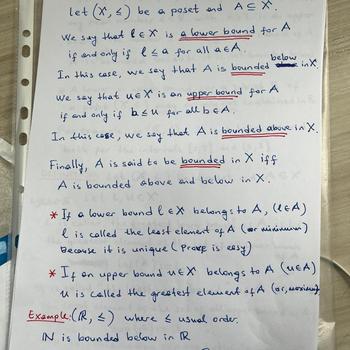 Let (X, ≤) be a poset and A ⊆ X.
We say that l ∈ X is a lower bound for A
if and only if l ≤ a for all a ∈ A.
In this case, we say that A is bounded below in X.
We say that u ∈ X is an upper bound for A
if and only if b ≤ u for all b ∈ A.
In this case, we say that A is bounded above in X.
Finally, A is said to be bounded in X iff
A is bounded above and below in X.
* If a lower bound l ∈ X belongs to A, (l ∈ A)
l is called the least element of A (or minimum)
Because it is unique (Prove is easy)
* If an upper bound u ∈ X belongs to A (u ∈ A)
u is called the greatest element of A (or, maximum)
Example: (ℝ, ≤) where ≤ usual order.
ℕ is bounded below in ℝ